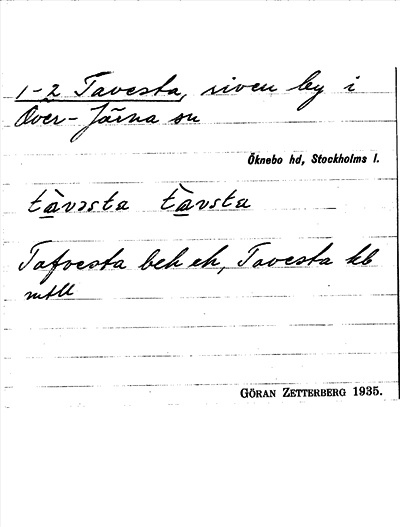 1-2 Tavesta, riven by i
Över-Järna sn
Öknebo hd, Stockholms l.
tàvəsta tàvsta
Tafvesta beh eh, Tavesta kb
mtll
GÖRAN ZETTERBERG 1935.